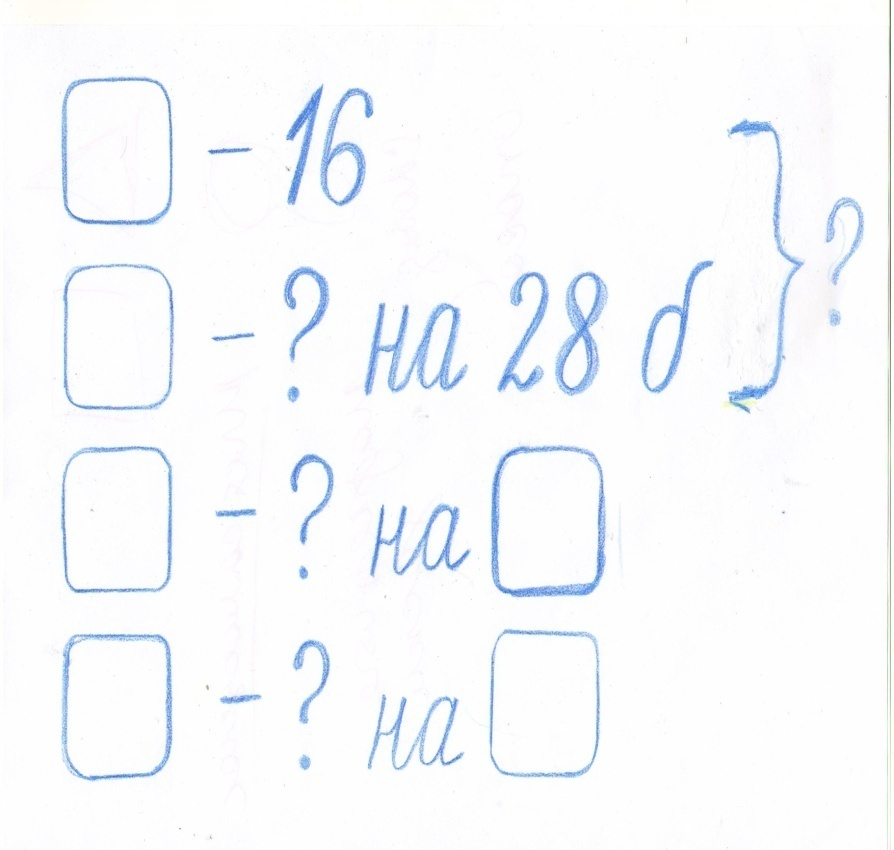 - 16
- ? на 28 б
?
- ? на
- ? на